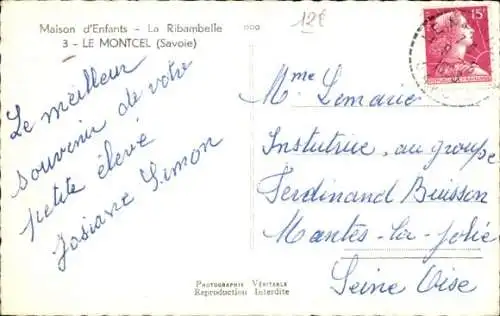 Maison d'Enfants - La Ribambelle
3 - LE MONTCEL (Savoie)
12€
15F
Le meilleur
souvenir de votre
petite élève
Josiane Simon
Mme Lemarie
Institutrice au groupe
Ferdinand Buisson
Mantes-la-Jolie
Seine Oise
PHOTOGRAPHIE VÉRITABLE
Reproduction Interdite